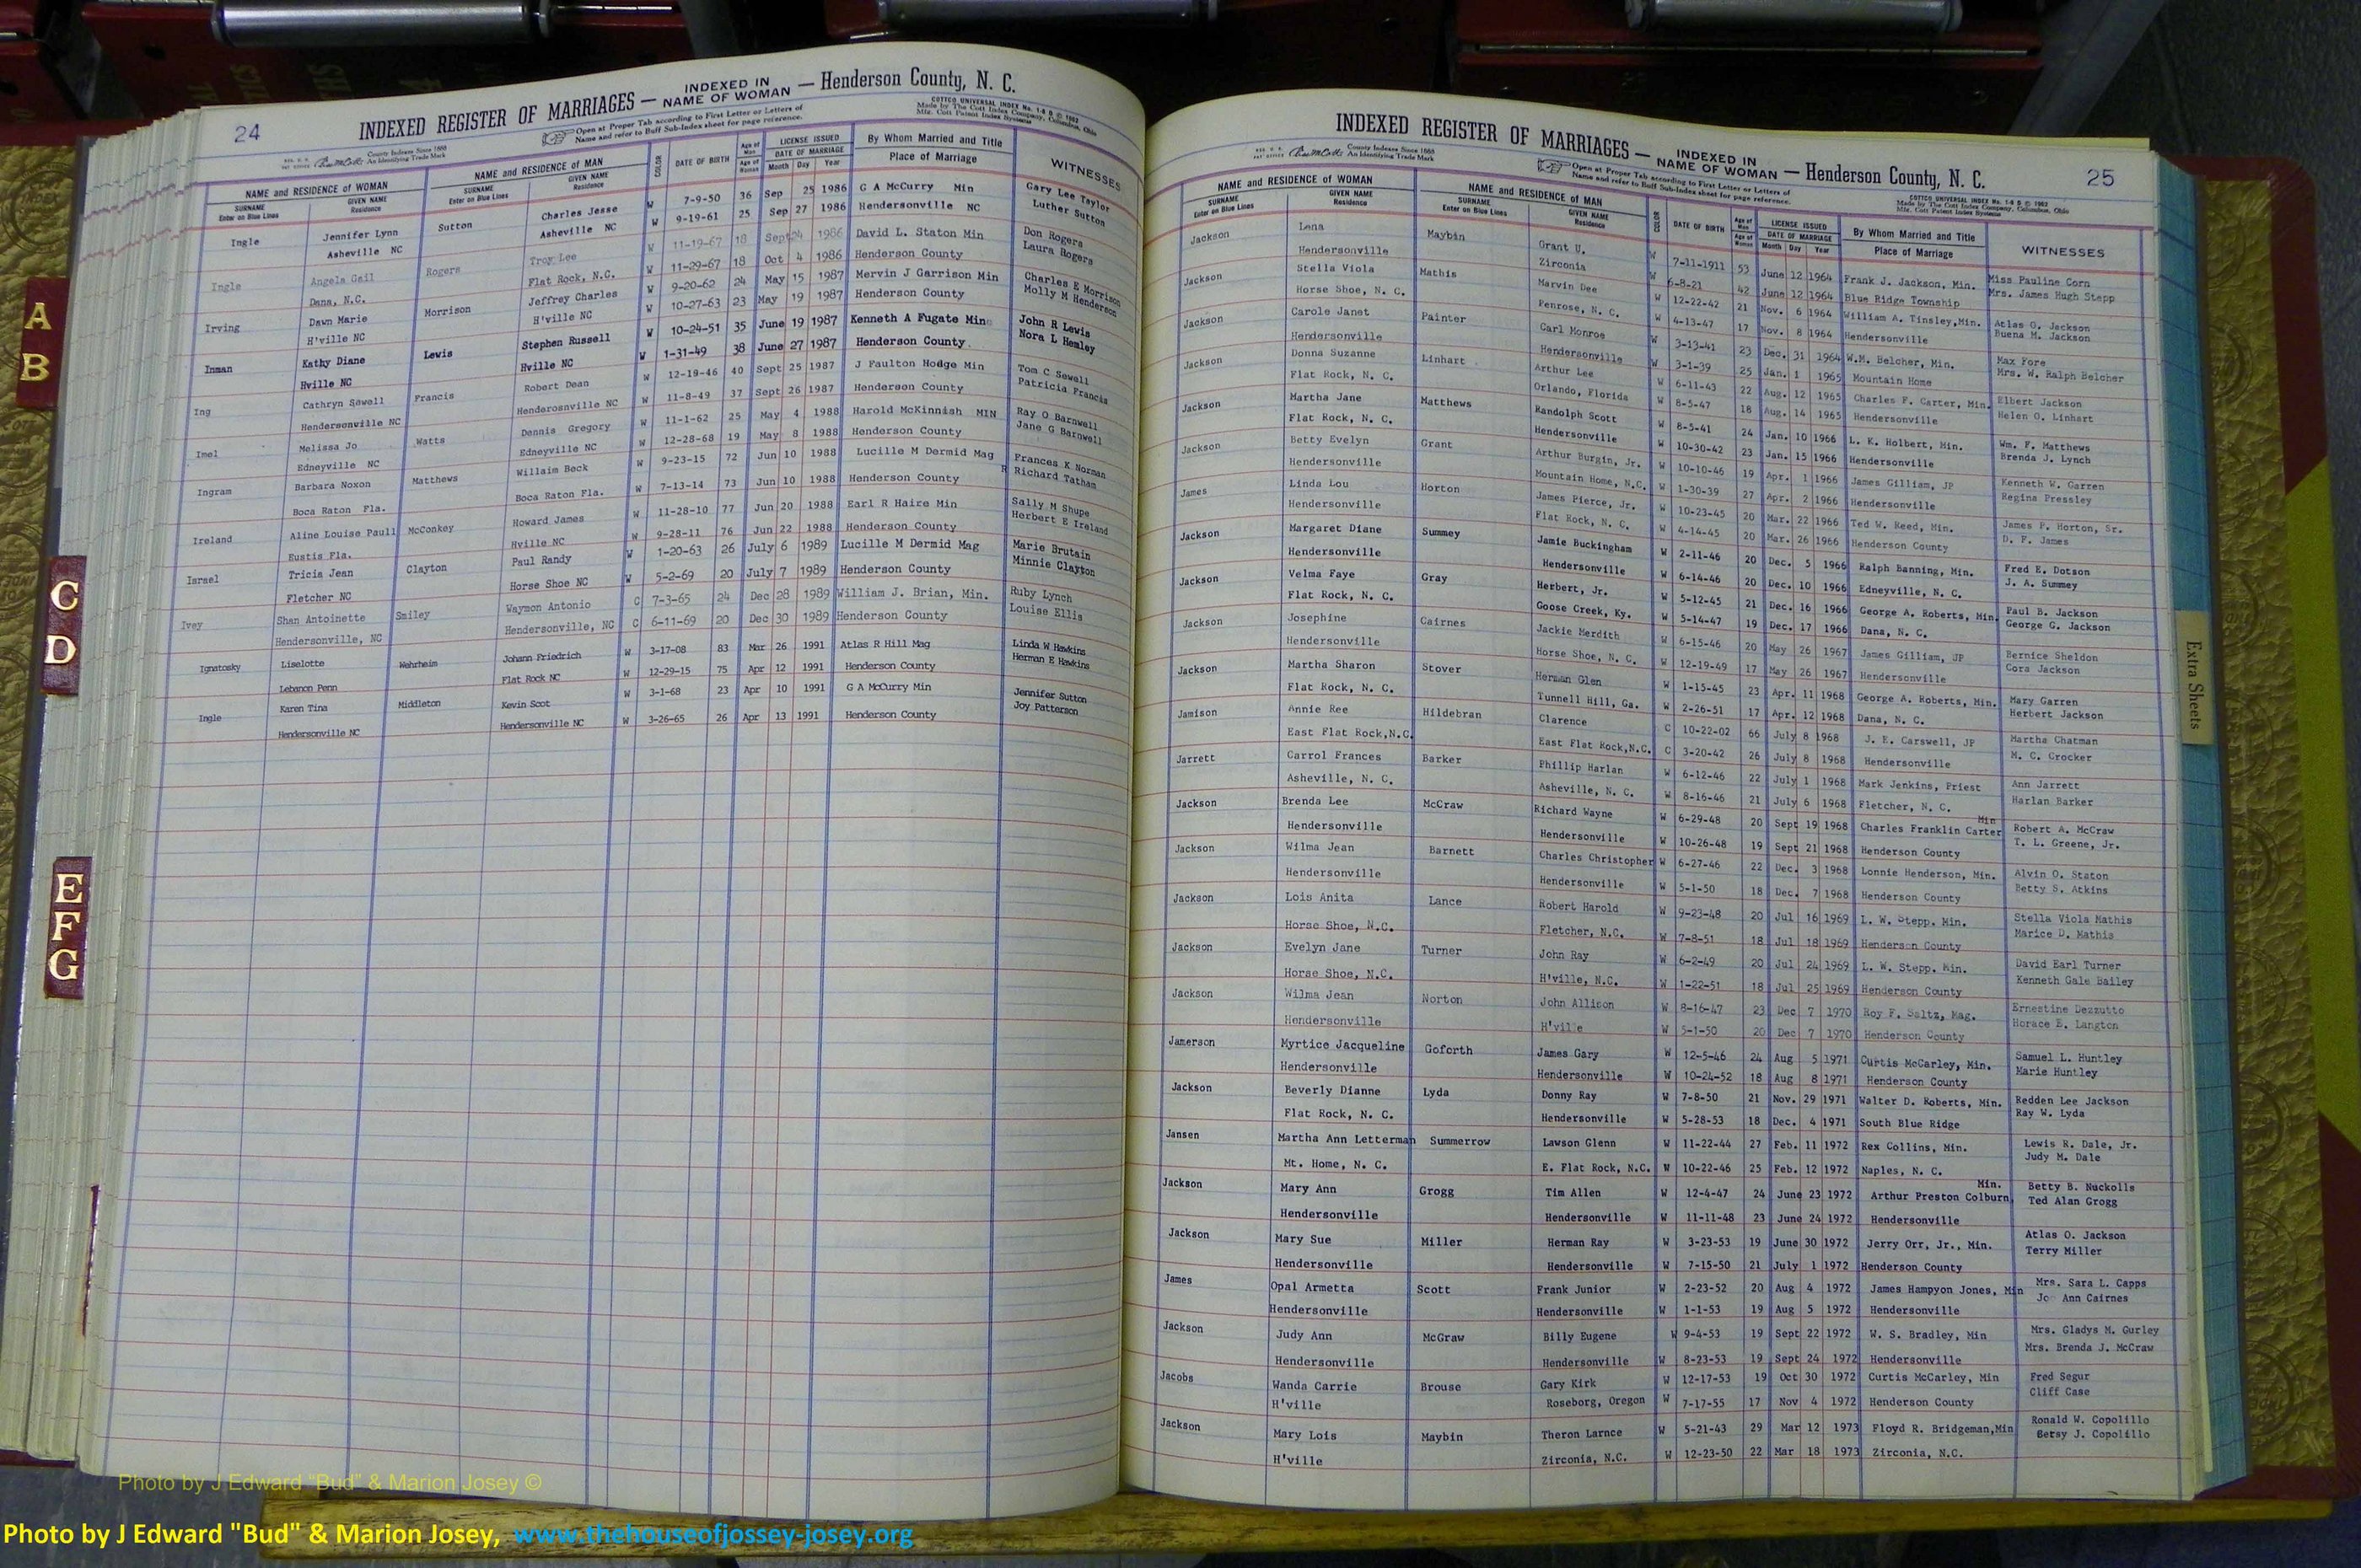 24
INDEXED REGISTER OF MARRIAGES — INDEXED IN NAME OF WOMAN — Henderson County, N. C.
Open at Proper Tab according to First Letter or Letters of
Name and refer to Buff Sub-Index sheet for page reference.
COTTCO UNIVERSAL INDEX No. 1-4 D © 1962
Made by The Cott Index Company, Columbus, Ohio
Mfg. Cott Patent Index Systems
County Indexes Since 1888
An Identifying Trade Mark
NAME and RESIDENCE OF WOMAN NAME and RESIDENCE OF MAN COLOR DATE OF BIRTH Age of Man LICENSE ISSUED By Whom Married and Title WITNESSES
SURNAME GIVEN NAME SURNAME GIVEN NAME Age of Woman DATE OF MARRIAGE Place of Marriage
Enter on Blue Lines Residence Enter on Blue Lines Residence Month Day Year
Ingle Jennifer Lynn Sutton Charles Jesse W 7-9-50 36 Sep 25 1986 G A McCurry Min Gary Lee Taylor
Asheville NC Asheville NC W 9-19-61 25 Sep 27 1986 Hendersonville NC Luther Sutton
Ingle Angela Gail Rogers Troy Lee W 11-19-67 18 Sept 24 1986 David L. Staton Min Don Rogers
Dana, N.C. Flat Rock, N.C. W 11-29-67 18 Oct 4 1986 Henderson County Laura Rogers
Irving Dawn Marie Morrison Jeffrey Charles W 9-20-62 24 May 15 1987 Mervin J Garrison Min Charles E Morrison
H'ville NC H'ville NC W 10-27-63 23 May 19 1987 Henderson County Molly M Henderson
Inman Kathy Diane Lewis Stephen Russell W 10-24-51 35 June 19 1987 Kenneth A Fugate Min John R Lewis
Hville NC Hville NC W 1-31-49 38 June 27 1987 Henderson County Nora L Hemley
Ing Cathryn Sewell Francis Robert Dean W 12-18-46 40 Sept 25 1987 J Faulton Hodge Min Tom C Sewell
Hendersonville NC Henderosnville NC W 11-8-49 37 Sept 26 1987 Henderson County Patricia Francis
Imel Melissa Jo Watts Dennis Gregory W 11-1-62 25 May 4 1988 Harold McKinnish MIN Ray O Barnwell
Edneyville NC Edneyville NC W 12-28-68 19 May 8 1988 Henderson County Jane G Barnwell
Ingram Barbara Noxon Matthews Willaim Beck W 9-23-15 72 Jun 10 1988 Lucille M Dermid Mag Frances K Norman
Boca Raton Fla. Boca Raton Fla. W 7-13-14 73 Jun 10 1988 Henderson County R Richard Tatham
Ireland Aline Louise Paull McConkey Howard James W 11-28-10 77 Jun 20 1988 Earl R Haire Min Sally M Shupe
Eustis Fla. Hville NC W 9-28-11 76 Jun 22 1988 Henderson County Herbert E Ireland
Israel Tricia Jean Clayton Paul Randy W 1-20-63 26 July 6 1989 Lucille M Dermid Mag Marie Brutain
Fletcher NC Horse Shoe NC W 5-2-69 20 July 7 1989 Henderson County Minnie Clayton
Ivey Shan Antoinette Smiley Waymon Antonio C 7-3-65 24 Dec 28 1989 William J. Brian, Min. Ruby Lynch
Hendersonville, NC Hendersonville, NC C 6-11-69 20 Dec 30 1989 Henderson County Louise Ellis
Ignatosky Liselotte Wehrheim Johann Friedrich W 3-17-08 83 Mar 26 1991 Atlas R Hill Mag Linda W Hawkins
Lebanon Penn Flat Rock NC W 12-29-15 75 Apr 12 1991 Henderson County Herman E Hawkins
Ingle Karen Tina Middleton Kevin Scot W 3-1-68 23 Apr 10 1991 G A McCurry Min Jennifer Sutton
Hendersonville NC Hendersonville NC W 3-26-65 26 Apr 13 1991 Henderson County Joy Patterson
A
B
C
D
E
F
G
INDEXED REGISTER OF MARRIAGES — INDEXED IN NAME OF WOMAN — Henderson County, N. C.
25
County Indexes Since 1888
An Identifying Trade Mark
Open at Proper Tab according to First Letter or Letters of
Name and refer to Buff Sub-Index sheet for page reference.
COTTCO UNIVERSAL INDEX No. 1-4 D © 1962
Made by The Cott Index Company, Columbus, Ohio
Mfg. Cott Patent Index Systems
NAME and RESIDENCE OF WOMAN NAME and RESIDENCE OF MAN COLOR DATE OF BIRTH Age of Man LICENSE ISSUED By Whom Married and Title WITNESSES
SURNAME GIVEN NAME SURNAME GIVEN NAME Age of Woman DATE OF MARRIAGE Place of Marriage
Enter on Blue Lines Residence Enter on Blue Lines Residence Month Day Year
Jackson Lena Maybin Grant U. W 7-11-1911 53 June 12 1964 Frank J. Jackson, Min. Miss Pauline Corn
Hendersonville Zirconia W 6-8-21 42 June 12 1964 Blue Ridge Township Mrs. James Hugh Stepp
Jackson Stella Viola Mathis Marvin Dee W 12-22-42 21 Nov. 6 1964 William A. Tinsley, Min. Atlas G. Jackson
Horse Shoe, N. C. Penrose, N. C. W 4-13-47 17 Nov. 8 1964 Hendersonville Buena M. Jackson
Jackson Carole Janet Painter Carl Monroe W 3-13-41 23 Dec. 31 1964 W.M. Belcher, Min. Max Fore
Hendersonville Hendersonville W 3-1-39 25 Jan. 1 1965 Mountain Home Mrs. W. Ralph Belcher
Jackson Donna Suzanne Linhart Arthur Lee W 6-11-43 22 Aug. 12 1965 Charles F. Carter, Min. Elbert Jackson
Flat Rock, N. C. Orlando, Florida W 8-5-47 18 Aug. 14 1965 Hendersonville Helen O. Linhart
Jackson Martha Jane Matthews Randolph Scott W 8-5-41 24 Jan. 10 1966 L. K. Holbert, Min. Wm. F. Matthews
Flat Rock, N. C. Hendersonville W 10-30-42 23 Jan. 15 1966 Hendersonville Brenda J. Lynch
Jackson Betty Evelyn Grant Arthur Burgin, Jr. W 10-10-46 19 Apr. 1 1966 James Gilliam, JP Kenneth W. Garren
Hendersonville Mountain Home, N.C. W 1-30-39 27 Apr. 2 1966 Hendersonville Regina Pressley
James Linda Lou Horton James Pierce, Jr. W 10-23-45 20 Mar. 22 1966 Ted W. Reed, Min. James P. Horton, Sr.
Hendersonville Flat Rock, N. C. W 4-14-45 20 Mar. 26 1966 Henderson County D. F. James
Jackson Margaret Diane Summey Jamie Buckingham W 2-11-46 20 Dec. 5 1966 Ralph Banning, Min. Fred E. Dotson
Hendersonville Hendersonville W 6-14-46 20 Dec. 10 1966 Edneyville, N. C. J. A. Summey
Jackson Velma Faye Gray Herbert, Jr. W 5-12-45 21 Dec. 16 1966 George A. Roberts, Min. Paul B. Jackson
Flat Rock, N. C. Goose Creek, Ky. W 5-14-47 19 Dec. 17 1966 Dana, N. C. George G. Jackson
Jackson Josephine Cairnes Jackie Merdith W 6-15-46 20 May 26 1967 James Gilliam, JP Bernice Sheldon
Hendersonville Horse Shoe, N. C. W 12-19-49 17 May 26 1967 Hendersonville Cora Jackson
Jackson Martha Sharon Stover Herman Glen W 1-15-45 23 Apr. 11 1968 George A. Roberts, Min. Mary Garren
Flat Rock, N. C. Tunnell Hill, Ga. W 2-26-51 17 Apr. 12 1968 Dana, N. C. Herbert Jackson
Jamison Annie Ree Hildebran Clarence C 10-22-02 66 July 8 1968 J. E. Carswell, JP Martha Chatman
East Flat Rock, N.C. East Flat Rock, N.C. C 3-20-42 26 July 8 1968 Hendersonville M. C. Crocker
Jarrett Carrol Frances Barker Phillip Harlan W 6-12-46 22 July 1 1968 Mark Jenkins, Priest Ann Jarrett
Asheville, N. C. Asheville, N. C. W 8-16-46 21 July 6 1968 Fletcher, N. C. Harlan Barker
Jackson Brenda Lee McCraw Richard Wayne W 6-29-48 20 Sept 19 1968 Charles Franklin Carter Min Robert A. McCraw
Hendersonville Hendersonville W 10-26-48 19 Sept 21 1968 Henderson County T. L. Greene, Jr.
Jackson Wilma Jean Barnett Charles Christopher W 6-27-46 22 Dec. 3 1968 Lonnie Henderson, Min. Alvin O. Staton
Hendersonville Hendersonville W 5-1-50 18 Dec. 7 1968 Henderson County Betty S. Atkins
Jackson Lois Anita Lance Robert Harold W 9-23-48 20 Jul 16 1969 L. W. Stepp. Min. Stella Viola Mathis
Horse Shoe, N.C. Fletcher, N.C. W 7-8-51 18 Jul 18 1969 Henderson County Marice D. Mathis
Jackson Evelyn Jane Turner John Ray W 6-2-49 20 Jul 24 1969 L. W. Stepp. Min. David Earl Turner
Horse Shoe, N.C. H'ville, N.C. W 1-22-51 18 Jul 25 1969 Henderson County Kenneth Gale Bailey
Jackson Wilma Jean Norton John Allison W 8-16-47 23 Dec 7 1970 Roy F. Saltz, Mag. Ernestine Dezzutto
Hendersonville H'ville W 5-1-50 20 Dec 7 1970 Henderson County Horace E. Langton
Jamerson Myrtice Jacqueline Goforth James Gary W 12-5-46 24 Aug 5 1971 Curtis McCarley, Min. Samuel L. Huntley
Hendersonville Hendersonville W 10-24-52 18 Aug 8 1971 Henderson County Marie Huntley
Jackson Beverly Dianne Lyda Donny Ray W 7-8-50 21 Nov. 29 1971 Walter D. Roberts, Min. Redden Lee Jackson
Flat Rock, N. C. Hendersonville W 5-28-53 18 Dec. 4 1971 South Blue Ridge Ray W. Lyda
Jansen Martha Ann Letterman Summerrow Lawson Glenn W 11-22-44 27 Feb. 11 1972 Rex Collins, Min. Lewis R. Dale, Jr.
Mt. Home, N. C. E. Flat Rock, N.C. W 10-22-46 25 Feb. 12 1972 Naples, N. C. Judy M. Dale
Jackson Mary Ann Grogg Tim Allen W 12-4-47 24 June 23 1972 Arthur Preston Colburn, Min. Betty B. Nuckolls
Hendersonville Hendersonville W 11-11-48 23 June 24 1972 Hendersonville Ted Alan Grogg
Jackson Mary Sue Miller Herman Ray W 3-23-53 19 June 30 1972 Jerry Orr, Jr., Min. Atlas O. Jackson
Hendersonville Hendersonville W 7-15-50 21 July 1 1972 Henderson County Terry Miller
James Opal Armetta Scott Frank Junior W 2-23-52 20 Aug 4 1972 James Hampyon Jones, Min Mrs. Sara L. Capps
Hendersonville Hendersonville W 1-1-53 19 Aug 5 1972 Hendersonville Jo Ann Cairnes
Jackson Judy Ann McGraw Billy Eugene W 9-4-53 19 Sept 22 1972 W. S. Bradley, Min Mrs. Gladys M. Gurley
Hendersonville Hendersonville W 8-23-53 19 Sept 24 1972 Hendersonville Mrs. Brenda J. McCraw
Jacobs Wanda Carrie Brouse Gary Kirk W 12-17-53 19 Oct 30 1972 Curtis McCarley, Min Fred Segur
H'ville Roseborg, Oregon W 7-17-55 17 Nov 4 1972 Henderson County Cliff Case
Jackson Mary Lois Maybin Theron Larnce W 5-21-43 29 Mar 12 1973 Floyd R. Bridgeman, Min Ronald W. Copolillo
H'ville Zirconia, N.C. W 12-23-50 22 Mar 18 1973 Zirconia, N.C. Betsy J. Copolillo
Extra Sheets
Photo by J Edward "Bud" & Marion Josey ©
Photo by J Edward "Bud" & Marion Josey, www.thehouseofjossey-josey.org